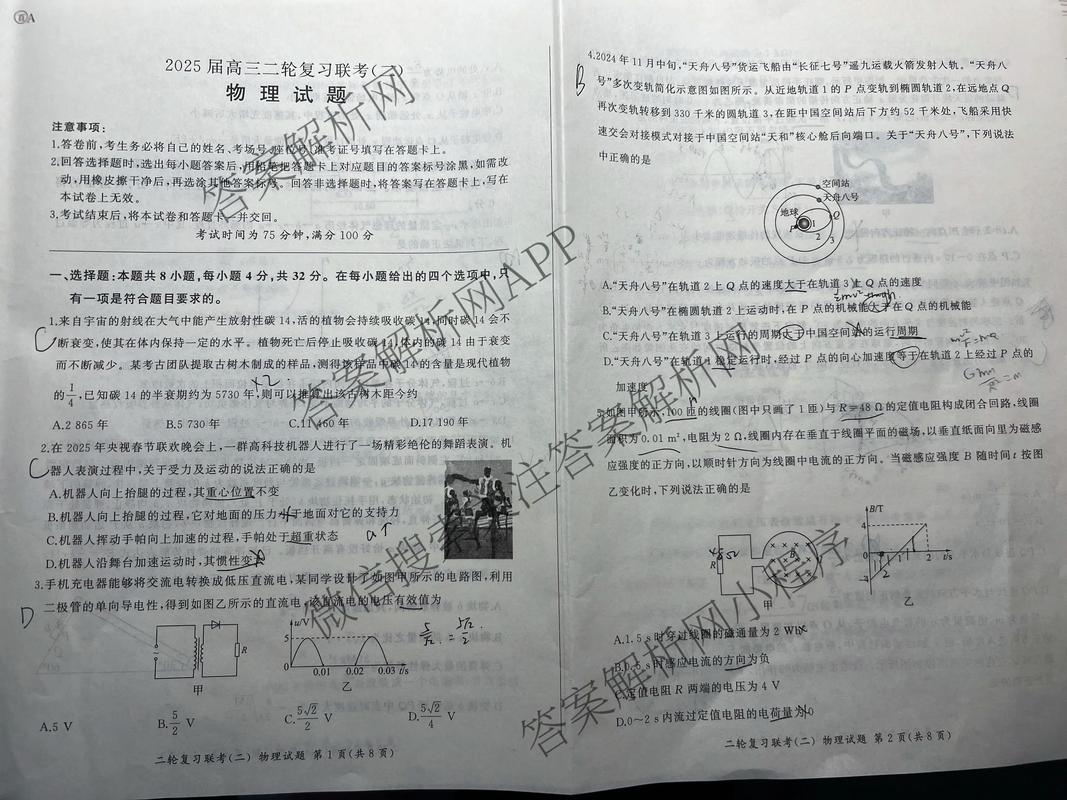 2025届高三二轮复习联考(二)
物理试题
注意事项:
1.答卷前,考生务必将自己的姓名、考场号、座位号、准考证号填写在答题卡上。
2.回答选择题时,选出每小题答案后,用铅笔把答题卡上对应题目的答案标号涂黑,如需改
动,用橡皮擦干净后,再选涂其他答案标号。回答非选择题时,将答案写在答题卡上,写在
本试卷上无效。
3.考试结束后,将本试卷和答题卡一并交回。
考试时间为75分钟,满分100分
一、选择题:本题共8小题,每小题4分,共32分。在每小题给出的四个选项中,只
有一项是符合题目要求的。
C
1.来自宇宙的射线在大气中能产生放射性碳14,活的植物会持续吸收碳14,同时碳14会不
断衰变,使其在体内保持一定的水平。植物死亡后停止吸收碳14,体内的碳14由于衰变
而不断减少。某考古团队提取古树木制成的样品,测得该样品中碳14的含量是现代植物
×2
的1/4,已知碳14的半衰期约为5730年,则可以推算出该古树木距今约
A.2 865年 B.5 730年 C.11 460年 D.17 190年
C
2.在2025年央视春节联欢晚会上,一群高科技机器人进行了一场精彩绝伦的舞蹈表演。机
器人表演过程中,关于受力及运动的说法正确的是
A.机器人向上抬腿的过程,其重心位置不变
B.机器人向上抬腿的过程,它对地面的压力大于地面对它的支持力
C.机器人挥动手帕向上加速的过程,手帕处于超重状态
a↑
D.机器人沿舞台加速运动时,其惯性变大
D
3.手机充电器能够将交流电转换成低压直流电,某同学设计了如图甲所示的电路图,利用
二极管的单向导电性,得到如图乙所示的直流电,该直流电的电压有效值为
5/√2 = 5√2/2
R
甲
u/V
5
0 0.01 0.02 0.03 t/s
乙
A.5 V B.5/2 V C.5√2/2 V D.5√2/4 V
二轮复习联考(二) 物理试题 第1页(共8页)
B
4.2024年11月中旬,“天舟八号”货运飞船由“长征七号”遥九运载火箭发射入轨。“天舟八
号”多次变轨简化示意图如图所示。从近地轨道1的P点变轨到椭圆轨道2,在远地点Q
再次变轨转移到330千米的圆轨道3,在距中国空间站后下方约52千米处,飞船采用快
速交会对接模式对接于中国空间站“天和”核心舱后向端口。关于“天舟八号”,下列说法
中正确的是
空间站
天舟八号
地球
P 1 2 3 Q
A.“天舟八号”在轨道2上Q点的速度大于在轨道3上Q点的速度
B.“天舟八号”在椭圆轨道2上运动时,在P点的机械能大于在Q点的机械能
C.“天舟八号”在轨道3上运行的周期大于中国空间站的运行周期
D.“天舟八号”在轨道1稳定运行时,经过P点的向心加速度等于在轨道2上经过P点的
加速度
5.如图甲所示,100匝的线圈(图中只画了1匝)与R=48 Ω的定值电阻构成闭合回路,线圈
面积为0.01 m²,电阻为2 Ω,线圈内存在垂直于线圈平面的磁场,以垂直纸面向里为磁感
应强度的正方向,以顺时针方向为线圈中电流的正方向。当磁感应强度B随时间t按图
乙变化时,下列说法正确的是
R
B
甲
B/T
4
0 1 2 t/s
乙
A.1.5 s时穿过线圈的磁通量为2 Wb
B.0.5 s时感应电流的方向为负
C.定值电阻R两端的电压为4 V
D.0~2 s内流过定值电阻的电荷量为0
二轮复习联考(二) 物理试题 第2页(共8页)
答案解析网
答案解析网APP
微信搜索关注答案解析网
答案解析网小程序